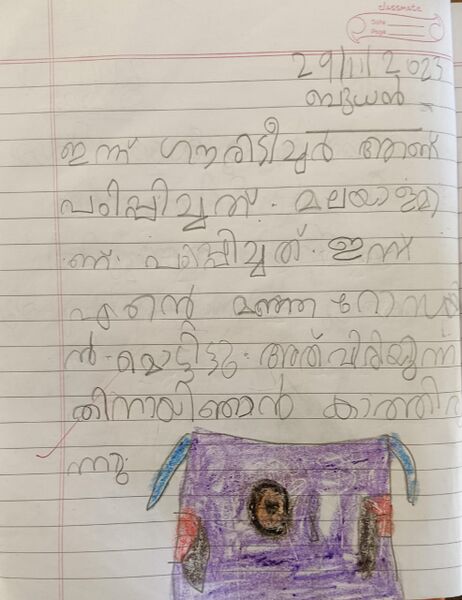 classmate
Date
Page
29/11/2023
ബുധൻ
ഇന്ന് ഗൗരിടീച്ചർ ആണ്
പഠിപ്പിച്ചത്. മലയാളമാ
ണ് പഠിപ്പിച്ചത്. ഇന്ന്
എന്റെ മഞ്ഞ റോസയി
ൽ മൊട്ടിട്ടു. അത് വിരിയുന്ന
തിനായി ഞാൻ കാത്തിരു
ന്നു